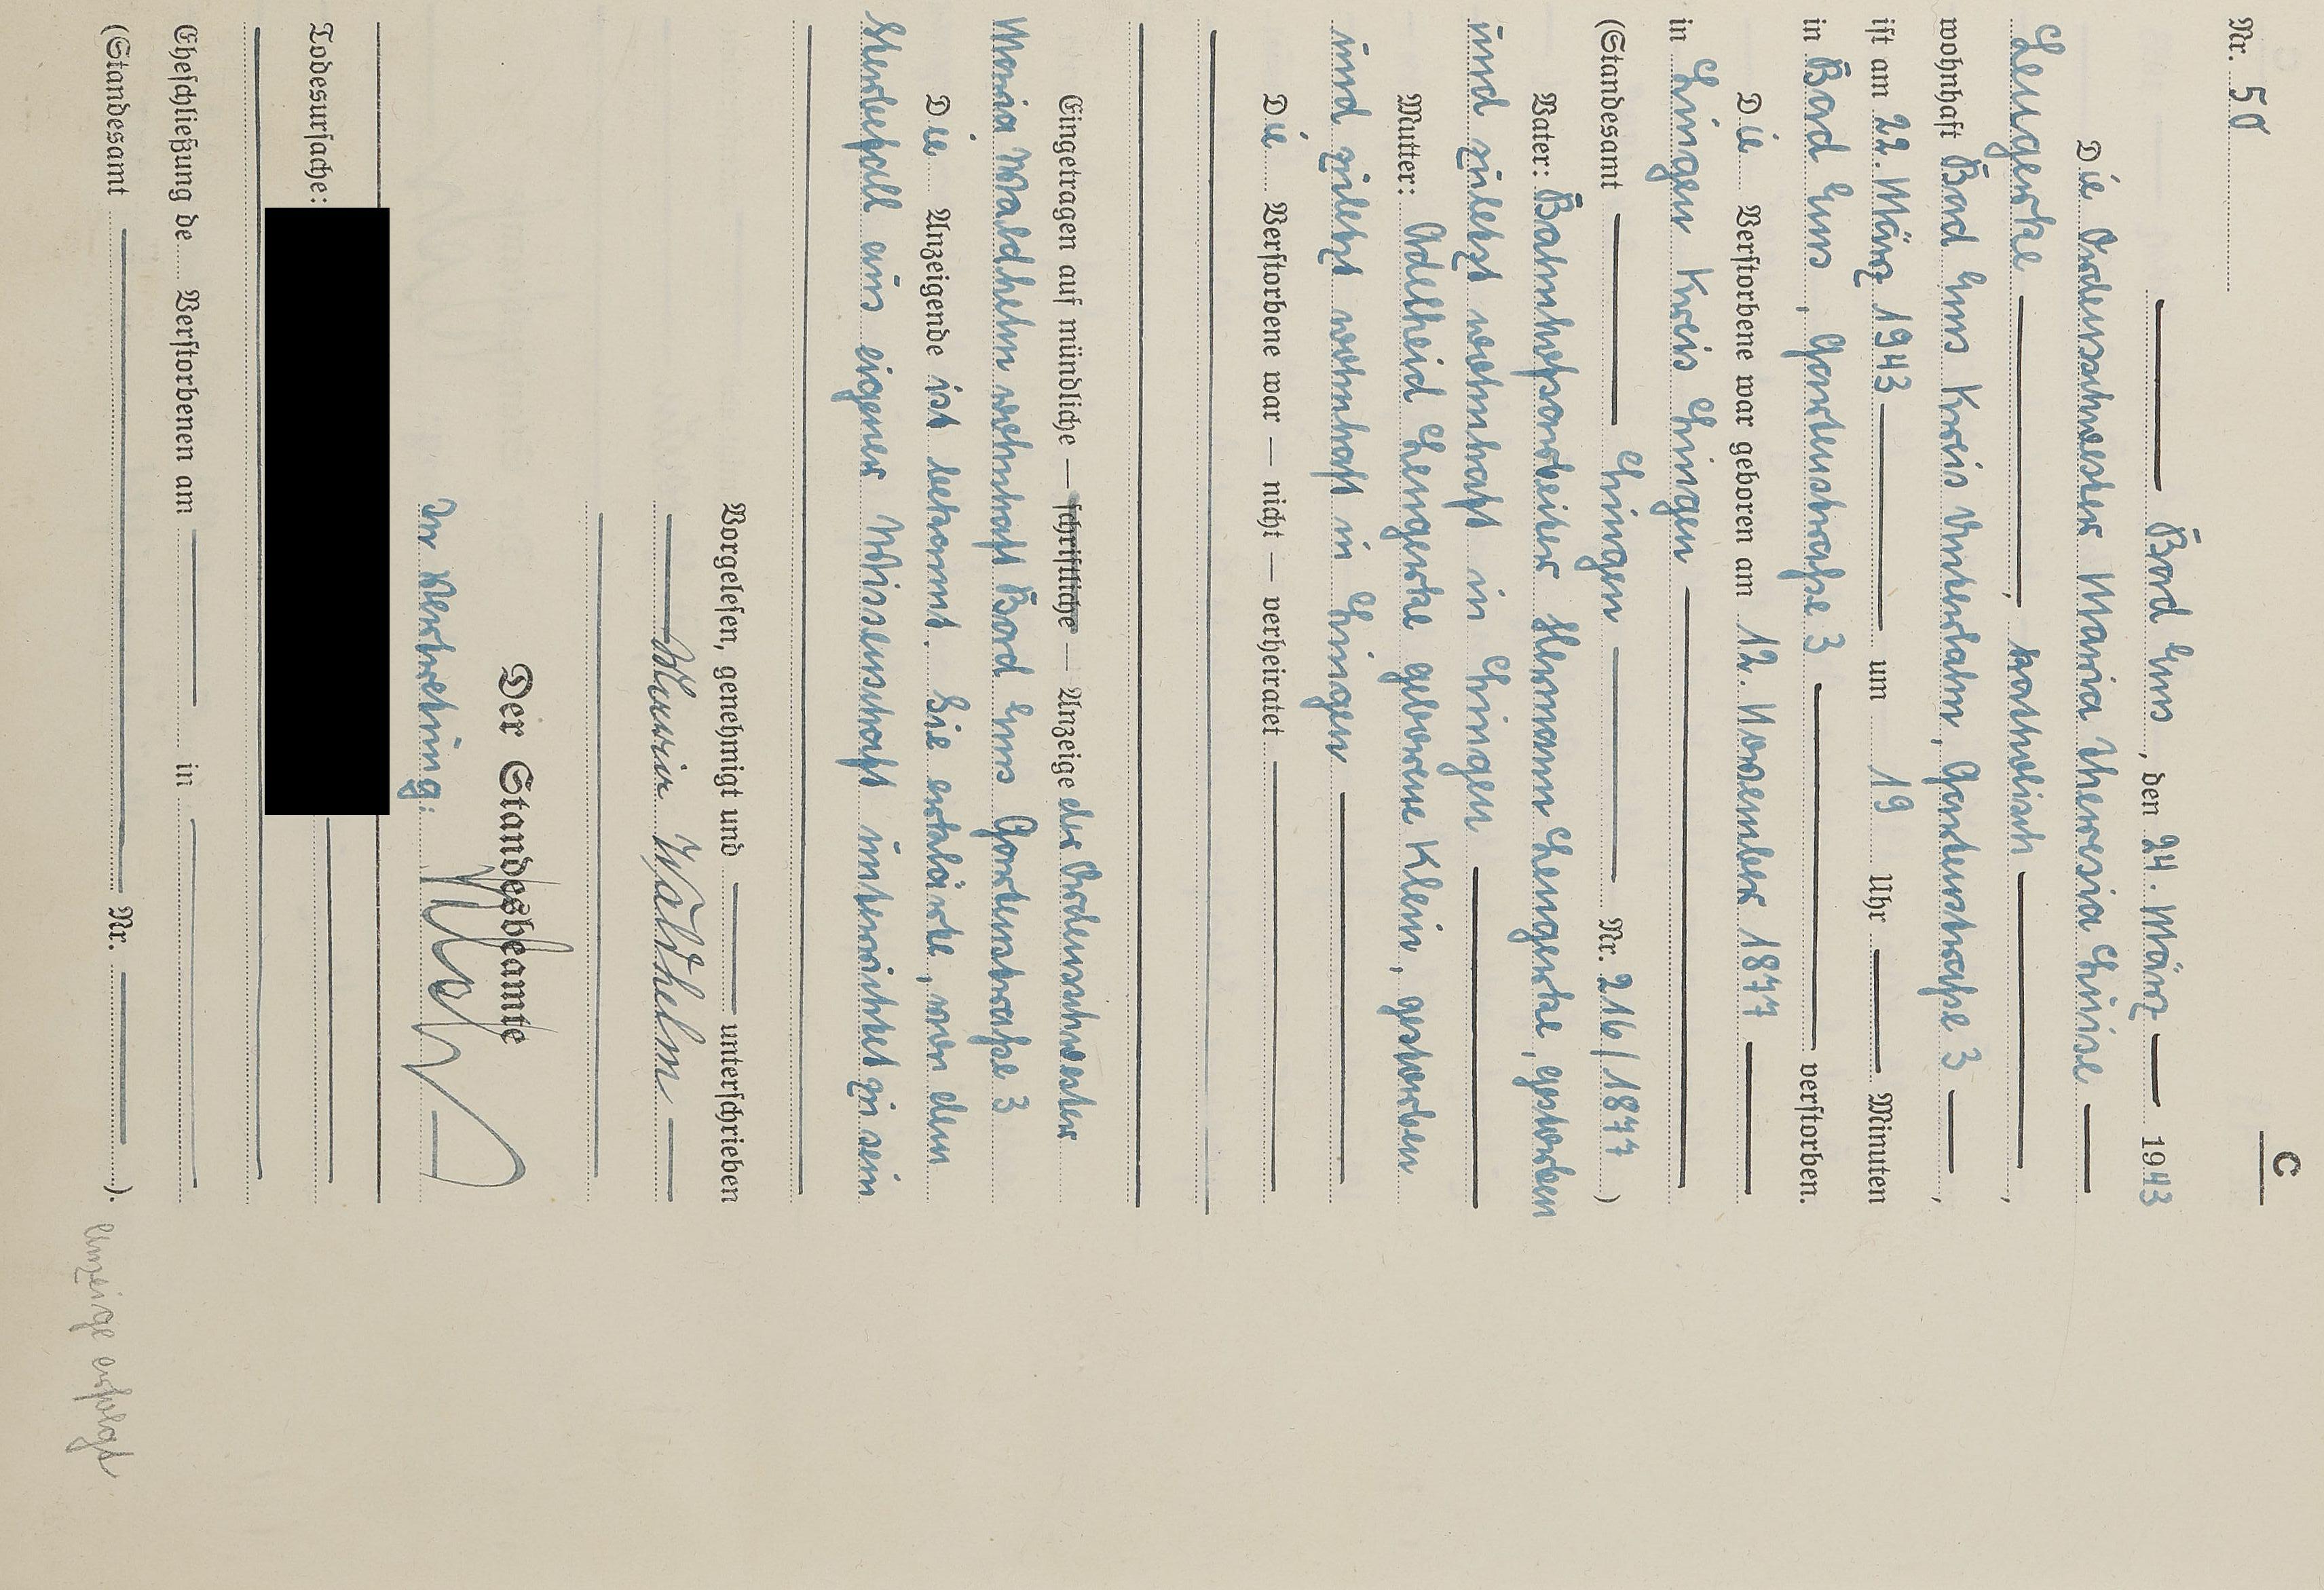 C
Nr. 50
Bad Ems, den 24. März 1943
Die Ordensschwester Maria Theresia Luise
Lengerke, katholisch,
wohnhaft Bad Ems Kreis Unterlahn, Gartenstraße 3,
ist am 22. März 1943 um 19 Uhr Minuten
in Bad Ems, Gartenstraße 3 verstorben.
Die Verstorbene war geboren am 12. November 1877
in Lingen Kreis Lingen
(Standesamt Lingen Nr. 216/1877)
Vater: Bahnhofsarbeiter Hermann Lengerke, gestorben
und zuletzt wohnhaft in Lingen
Mutter: Adelheid Lengerke geborene Klein, gestorben
und zuletzt wohnhaft in Lingen
Die Verstorbene war — nicht — verheiratet
Eingetragen auf mündliche — schriftliche — Anzeige der Ordensschwester
Maria Waldhelm wohnhaft Bad Ems Gartenstraße 3
Die Anzeigende ist bekannt. Sie erklärte, von dem
Sterbefall aus eigener Wissenschaft unterrichtet zu sein
Vorgelesen, genehmigt und unterschrieben
Maria Waldhelm
Der Standesbeamte
In Vertretung:
Todesursache:
Eheschließung de Verstorbenen am in
(Standesamt Nr. ).
Anzeige erfolgt